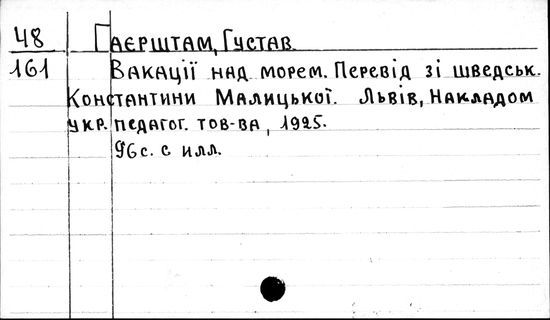 48 Гаєрштам, Густав.
161 Вакації над морем. Перевід зі шведськ.
Константини Малицької. Львів, Накладом
укр. педагог. тов-ва, 1925.
96 с. с илл.